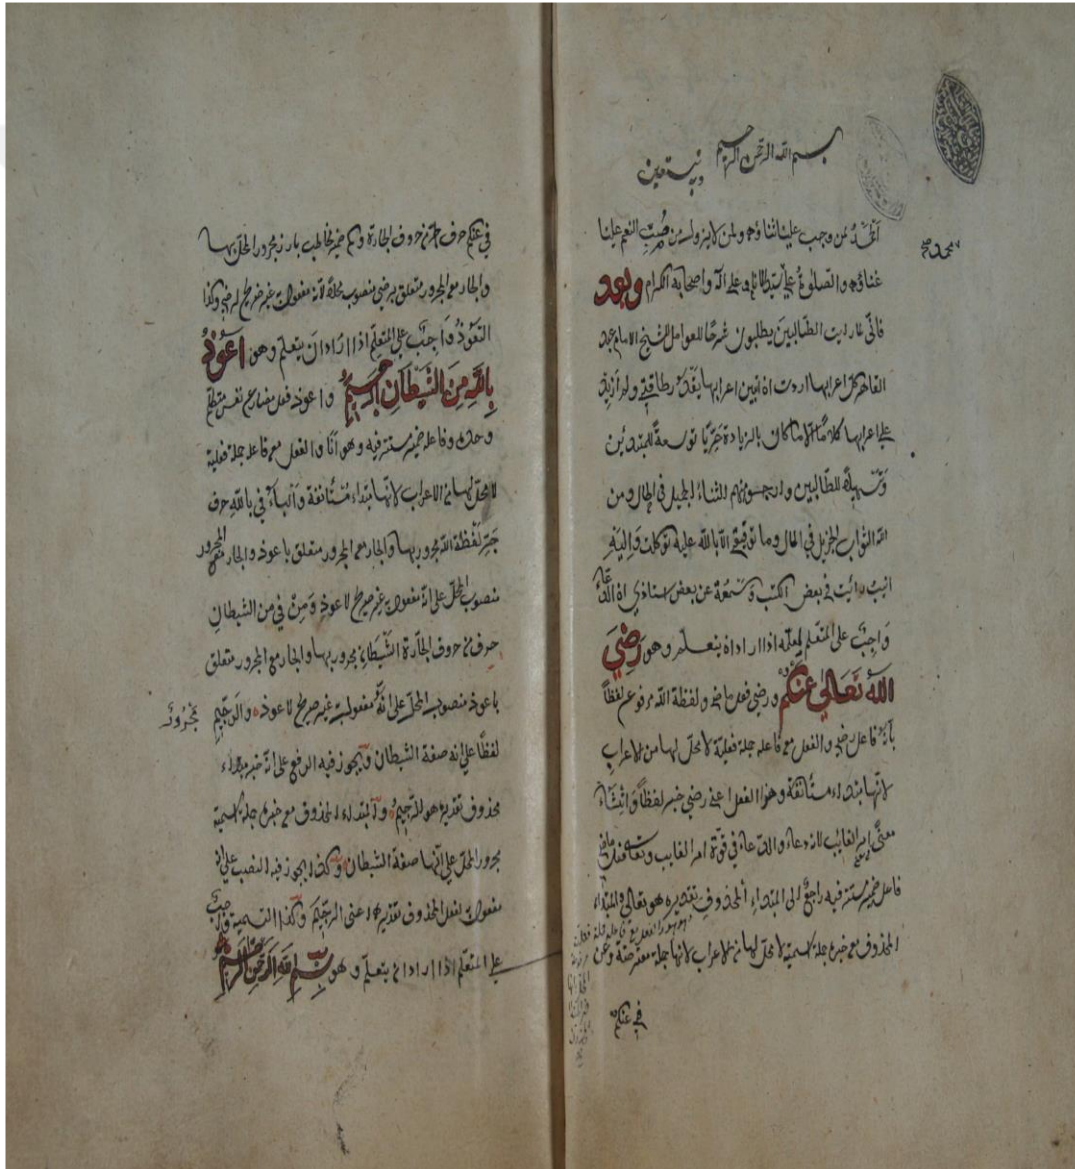 بسم الله الرحمن الرحيم
وبه نستعين
الحمد لمن وجب علينا ثناؤه ولمن لا يزول من صبّ النعم علينا
غناؤه والصلوة على سيدنا وعلى آله واصحابه الكرام وبعد
فانّى لما رايت الطّالبين يطلبون شرحًا للعوامل للشيخ الامام عبد
القاهر اعرابها اردت ان ابيّن اعرابها بقدر طاقتى ولم ازيد
على اعرابها كلامًا الّا ما كان بالزيادة حريّا توسعةً للمبتدئين
وتسهيلًا للطّالبين وارجو منهم الثناء الجميل فى الحال ومن
الله الثواب الجزيل فى المآل وما توفيقى الّا بالله عليه توكلت واليه
انيب رأيت فى بعض الكتب وسمعة عن بعض استاذى ان الدعاء
واجبٌ على المتعلم لمعلّمه اذا اراد ان يتعلم وهو رَضِيَ
اللهُ تَعَالى عَنْكُمْ ورضى فعل ماض ولفظة الله مرفوع لفظًا
بأنه فاعل رضى والفعل مع فاعله جملة فعلية لا محلّ لها من الاعراب
لانّها ابتداء مستأنفة وهذا الفعل اعنى رضى خبر لفظًا وانشاء
معنًى امر الغائب لانه دعاء والدعاء فى قوّة امر الغايب وتعالى فعل ماض
فاعله ضمير مستتر فيه راجع الى المبتداء المحذوف تقديره هو تعالى والمبتداء
المحذوف مع خبره جملة اسمية لا محلّ لها من الاعراب لانها جملة معترضة وعن
فى عنكم
فى عنكم حرف جرّ من حروف الجارة وكم ضمير مخاطب بارز مجرور المحلّ بها
والجار مع المجرور متعلق برضى منصوب محلا لانّه مفعول به غير صريح له رضى وكذا
التعوّذ واجبٌ على المتعلّم اذا اراد ان يتعلم وهو اَعُوذُ
بِاللهِ مِنَ الشَّيْطَانِ الرَّجِيمِ واعوذ فعل مضارع نفس متكلم
وحده وفاعله ضمير مستتر فيه وهو أنا والفعل مع فاعله جملة فعلية
لا محلّ لها من الاعراب لانّها ابتداء مُستأنفة والباء فى بالله حرف
جرّ لفظة الله مجرور بها والجار مع المجرور متعلق باعوذ والجار مع المجرور
منصوب المحلّ على انه مفعول به غير صريح لاعوذ ومن فى من الشيطان
حرف من حروف الجارّة الشيطان مجرور بها والجار مع المجرور متعلق
باعوذ منصوب المحلّ على انّه مفعول به غير صريح لاعوذ والرجيم مجرورٌ
لفظًا على انه صفة الشيطان ويجوز فيه الرفع على انّه خبر مبتداء
محذوف تقديره هو الرّجيم والمبتداء المحذوف مع خبره جملة اسمية
مجرور المحلّ على انّها صفة الشيطان وكذا يجوز فيه النصب على انه
مفعول به لفعل المحذوف تقديره اعنى الرجيم وكذا التسمية واجبٌ
على المتعلّم اذا اراد ان يتعلّم وهو بِسْمِ اللهِ الرَّحْمنِ الرَّحِيمِ